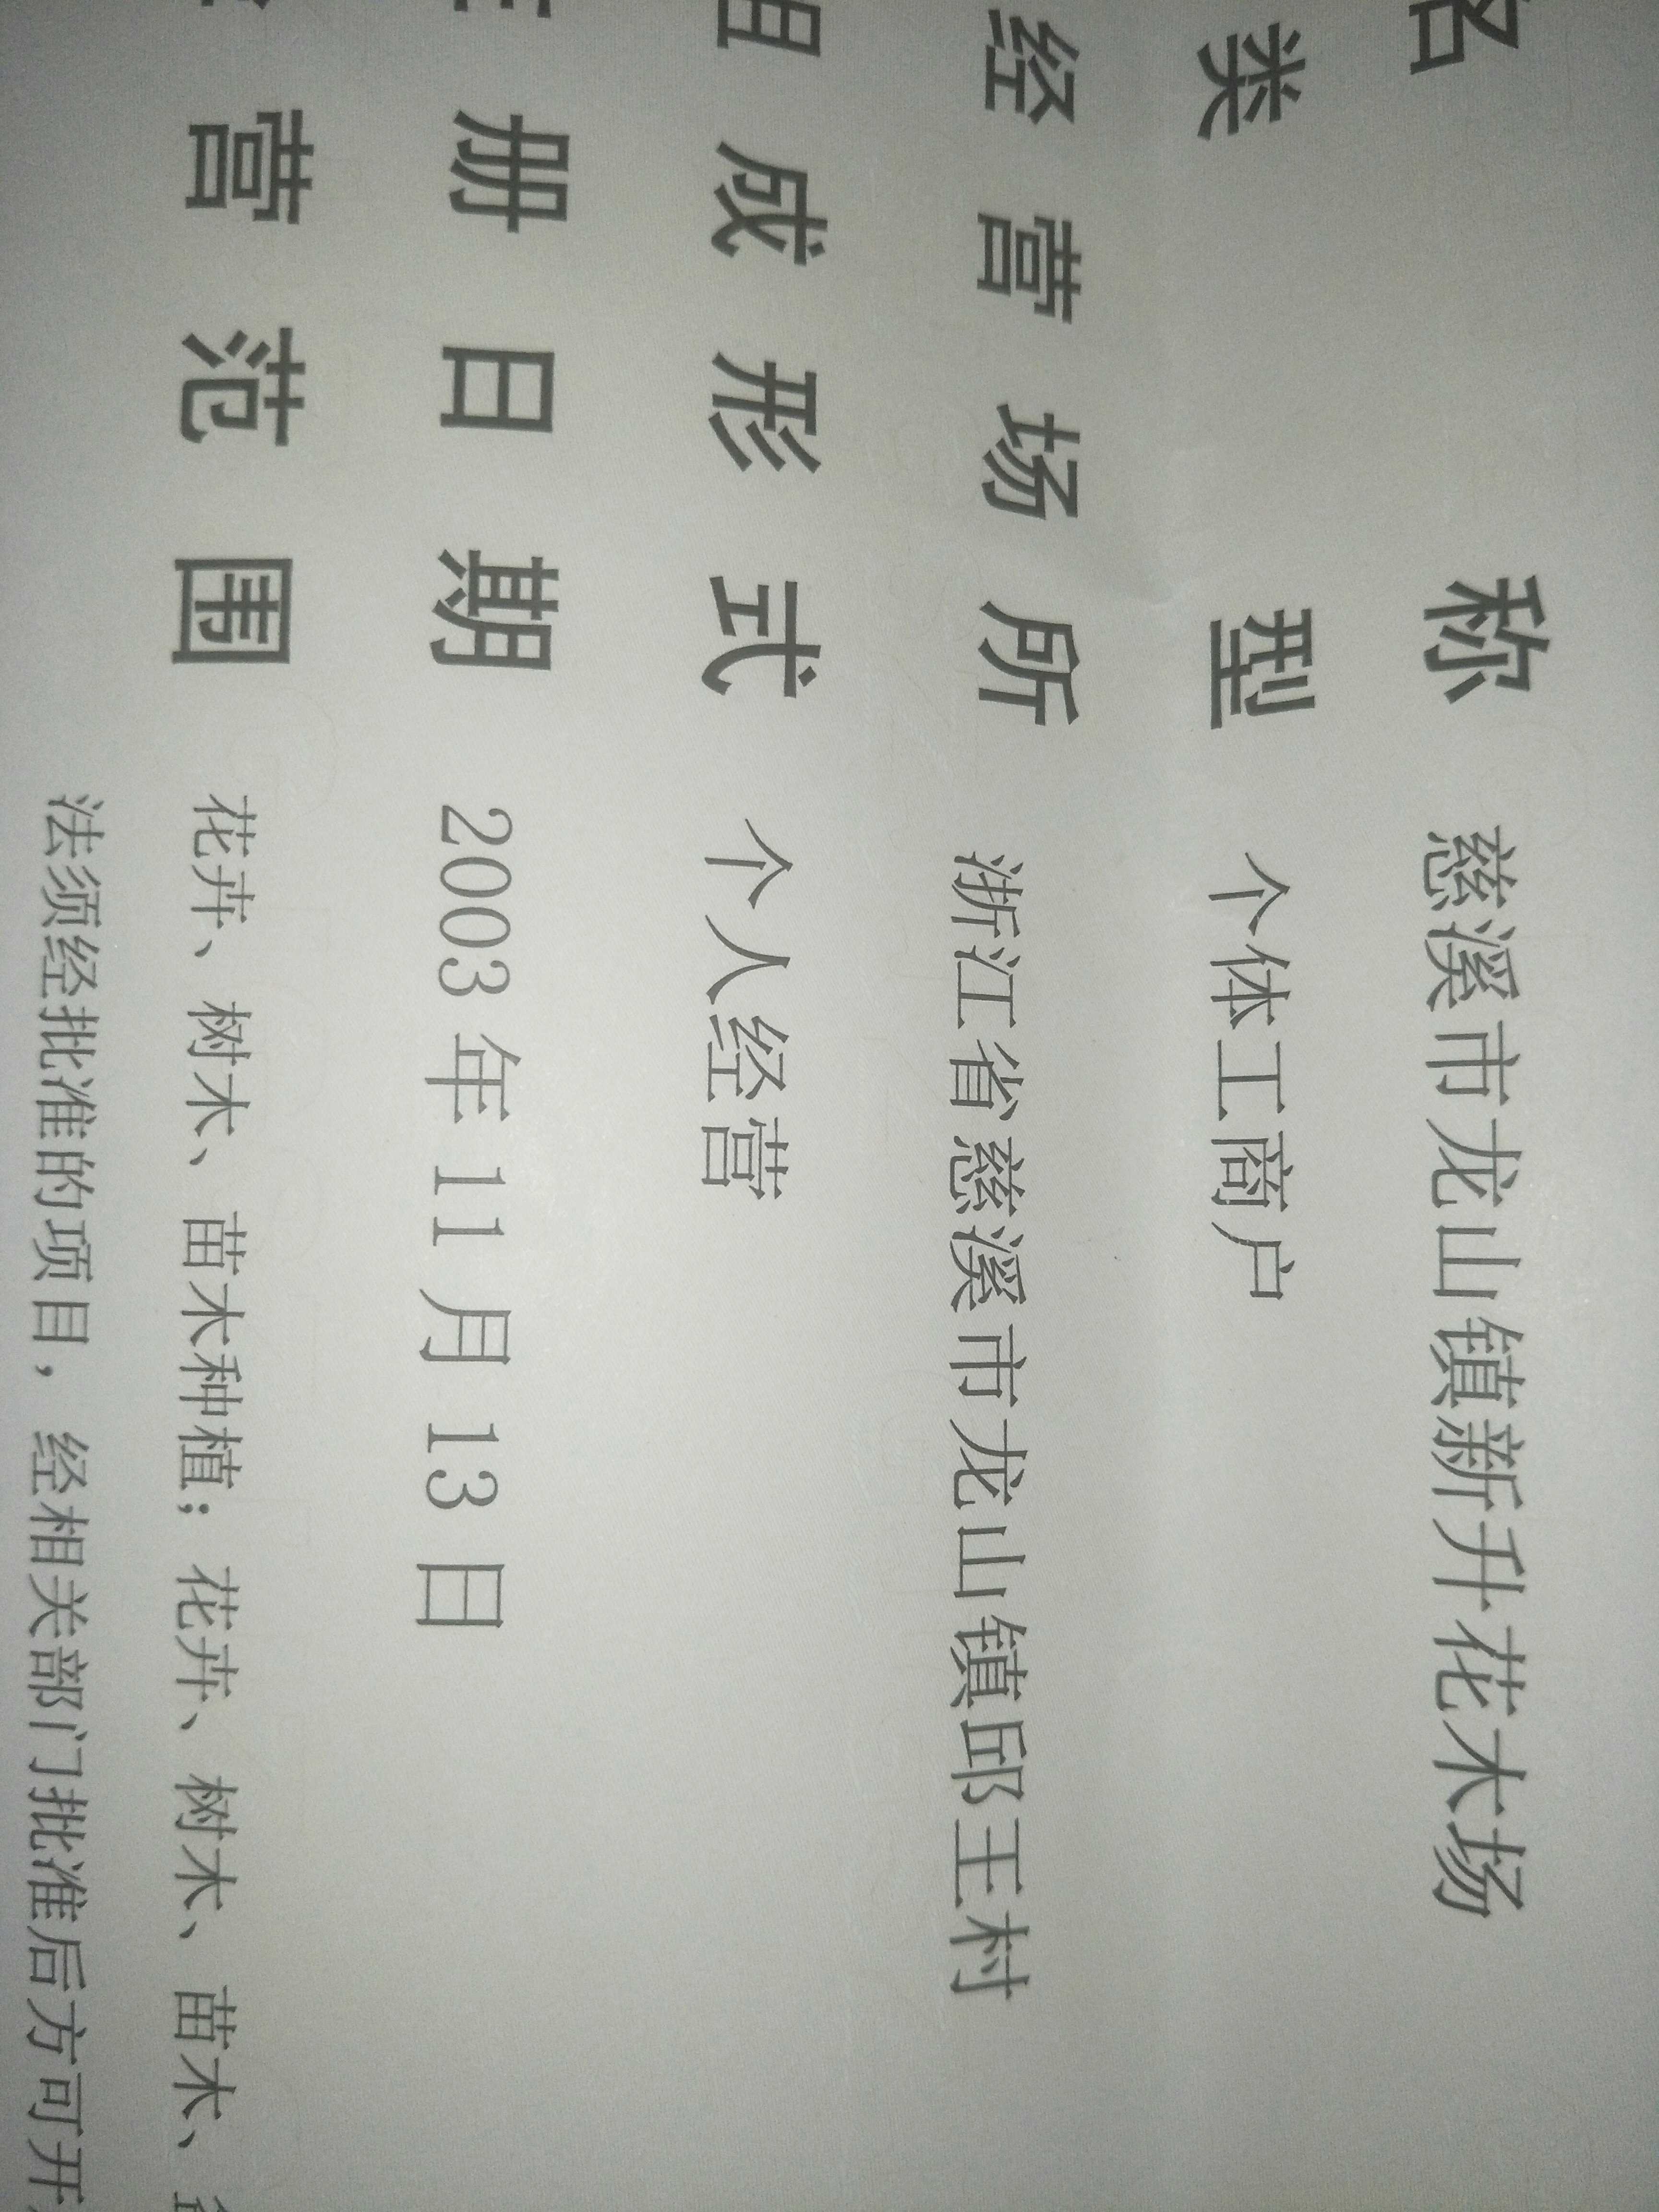 名 称 慈溪市龙山镇新升花木场
类 型 个体工商户
经营场所 浙江省慈溪市龙山镇邱王村
组成形式 个人经营
册日期 2003年11月13日
营范围 花卉、树木、苗木种植；花卉、树木、苗木、
法须经批准的项目，经相关部门批准后方可开